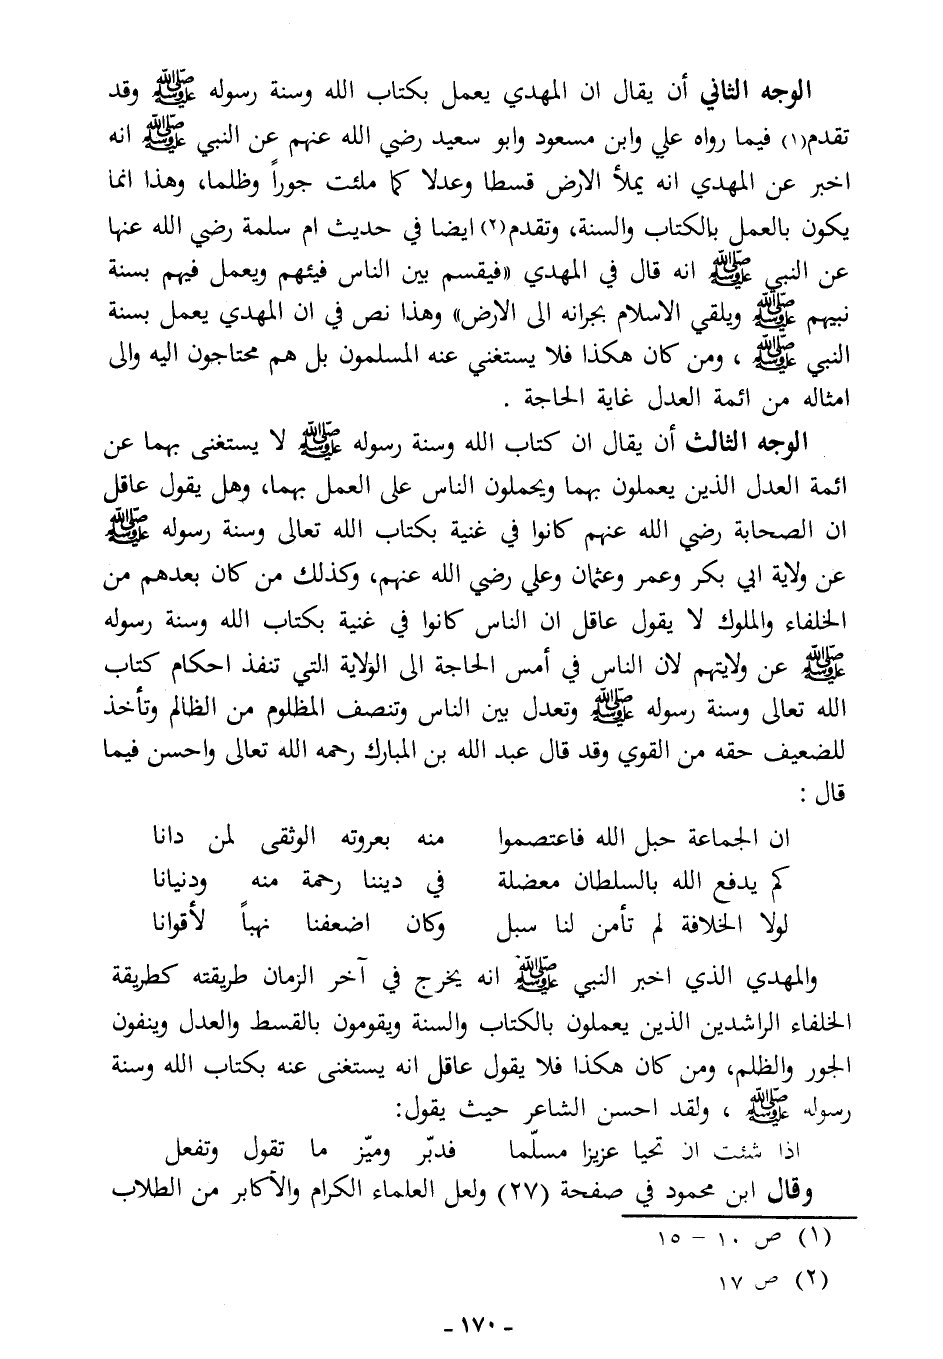 الوجه الثاني أن يقال ان المهدي يعمل بكتاب الله وسنة رسوله ﷺ وقد
تقدم(١) فيما رواه علي وابن مسعود وابو سعيد رضي الله عنهم عن النبي ﷺ انه
اخبر عن المهدي انه يملأ الارض قسطا وعدلا كما ملئت جوراً وظلما، وهذا انما
يكون بالعمل بالكتاب والسنة، وتقدم(٢) ايضا في حديث ام سلمة رضي الله عنها
عن النبي ﷺ انه قال في المهدي «فيقسم بين الناس فيئهم ويعمل فيهم بسنة
نبيهم ﷺ ويلقي الاسلام بجرانه الى الارض» وهذا نص في ان المهدي يعمل بسنة
النبي ﷺ ، ومن كان هكذا فلا يستغني عنه المسلمون بل هم محتاجون اليه والى
امثاله من ائمة العدل غاية الحاجة .
الوجه الثالث أن يقال ان كتاب الله وسنة رسوله ﷺ لا يستغنى بهما عن
ائمة العدل الذين يعملون بهما ويحملون الناس على العمل بهما، وهل يقول عاقل
ان الصحابة رضي الله عنهم كانوا في غنية بكتاب الله تعالى وسنة رسوله ﷺ
عن ولاية ابي بكر وعمر وعثمان وعلي رضي الله عنهم، وكذلك من كان بعدهم من
الخلفاء والملوك لا يقول عاقل ان الناس كانوا في غنية بكتاب الله وسنة رسوله
ﷺ عن ولايتهم لان الناس في أمس الحاجة الى الولاية التي تنفذ احكام كتاب
الله تعالى وسنة رسوله ﷺ وتعدل بين الناس وتنصف المظلوم من الظالم وتأخذ
للضعيف حقه من القوي وقد قال عبد الله بن المبارك رحمه الله تعالى واحسن فيما
قال :
ان الجماعة حبل الله فاعتصموا منه بعروته الوثقى لمن دانا
كم يدفع الله بالسلطان معضلة في ديننا رحمة منه ودنيانا
لولا الخلافة لم تأمن لنا سبل وكان اضعفنا نهباً لأقوانا
والمهدي الذي اخبر النبي ﷺ انه يخرج في آخر الزمان طريقته كطريقة
الخلفاء الراشدين الذين يعملون بالكتاب والسنة ويقومون بالقسط والعدل وينفون
الجور والظلم، ومن كان هكذا فلا يقول عاقل انه يستغنى عنه بكتاب الله وسنة
رسوله ﷺ ، ولقد احسن الشاعر حيث يقول:
اذا شئت ان تحيا عزيزا مسلّما فدبّر وميّز ما تقول وتفعل
وقال ابن محمود في صفحة (٢٧) ولعل العلماء الكرام والأكابر من الطلاب
(١) ص ١٠ - ١٥
(٢) ص ١٧
- ١٧٠ -